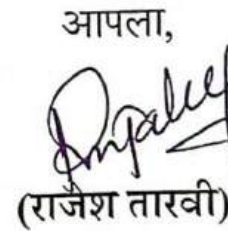 आपला,
(राजेश तारवी)